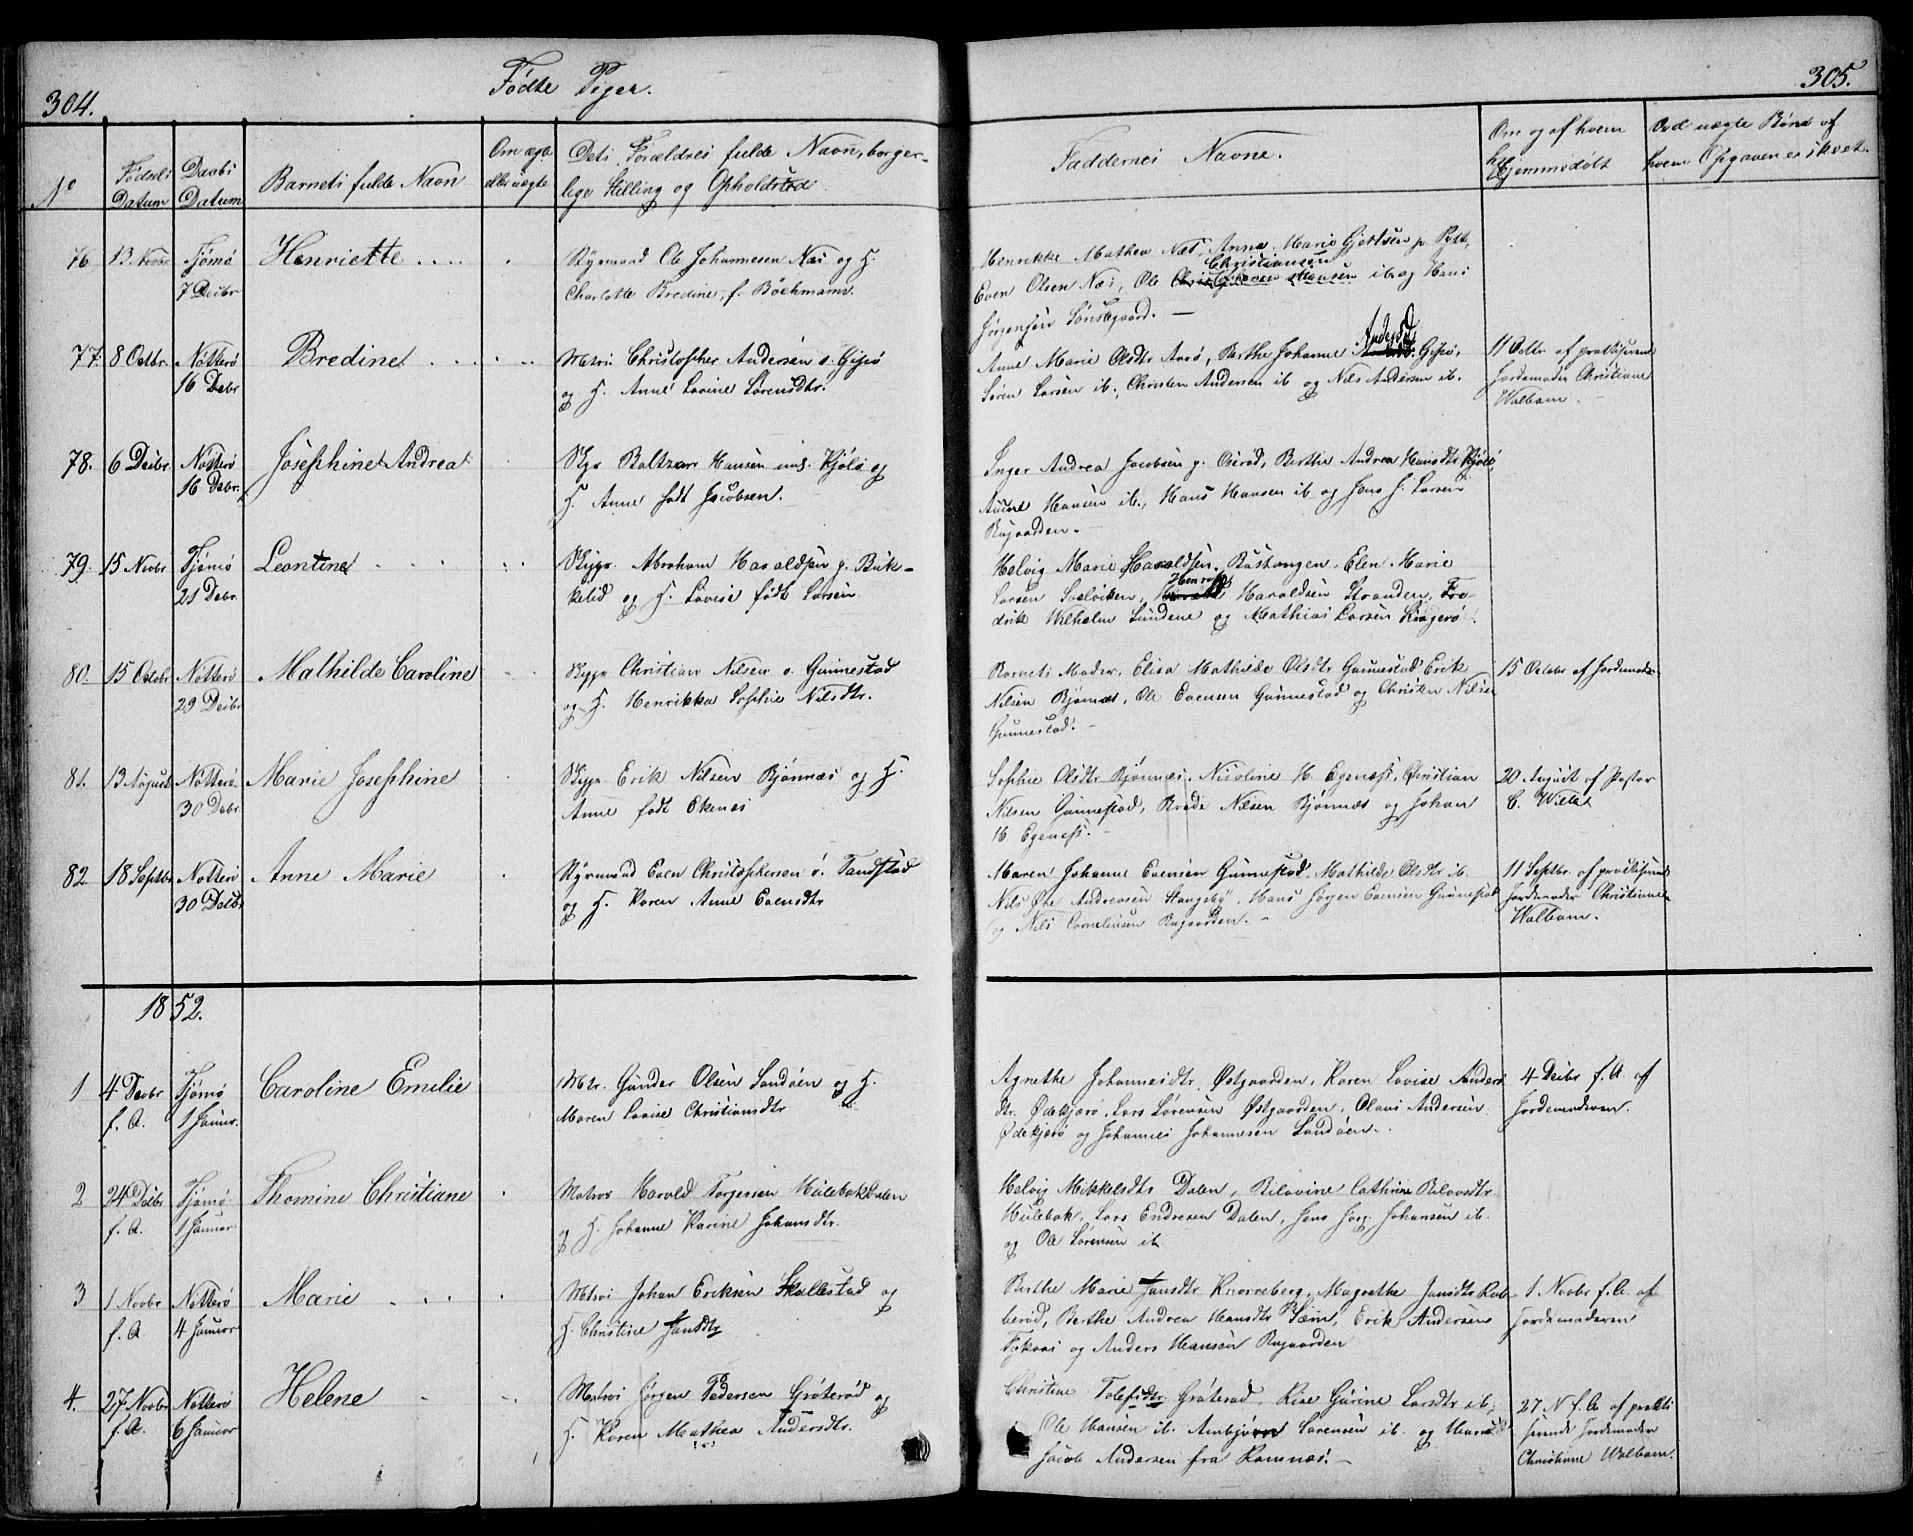 304.
Fødte Piger.
No
Fødsels Datum
Daabs Datum
Barnets fulde Navn
Om ægte eller uægte
Dets Forældres fulde Navn, borger-
lige Stilling og Opholdsted.
76 13 Novbr Tjømø 7 Decbr Henriette
Styrmand Ole Johannesen Næs og H.
Charlotte Bredine, f. Bochmann.
77. 8 Octbr. Nøtterø 16 Debr Bredine
Matros Christopher Andersen o. Gipø
og H. Anne Lovine Sørensdtr.
78. 6 Decbr. Nøtterø 16 Debr. Josephine Andrea
Skpr Baltzar Hansen Kjøle og
H. Anne født Jacobsen.
79. 15 Novbr Tjømø 21 Debr. Leontine
Skippr. Abraham Haraldsen p. Buk-
kelid og H. Lovise født Larsen
80. 15 Octobr Nøtterø 29 Decbr Mathilde Caroline
Skippr Christian Nilsen o. Gunnestad
og H. Henrikka Sophie Nilsdtr.
81. 13 August Nøtterø 30 Debr Marie Josephine
Skippr Erik Nilsen Bjønnes og H.
Anne født Ekenes
82 18 Septbr Nøtterø 30 Decbr Anne Marie
Styrmand Even Christophersen o. Tandstad
og H. Karen Anne Evensdtr
1852.
1 4 Decbr f. A. Tjømø 1 Januar. Caroline Emilie
Mtr. Gunder Olsen Sandøen og H.
Maren Lovise Christiansdtr
2 24 Decbr f. A. Tjømø 1 Januar Thomine Christiane
Matros Harold Torgersen Hulebak Dalen
og H. Johanne Karine Johansdtr.
3 1 Novbr f. A. Nøtterø 4 Januar Marie
Matros Johan Eriksen Skallestad og
H. Christine Jansdtr
4. 27 Novbr f. A. Nøtterø 6 Januar Helene
Matros Jørgen Pedersen Grøterød og
H. Karen Mathea Andersdtr.
305.
Faddernes Navne.
Om og af hvem Hjemmedøbt
Ved uægte Børn af
hvem Opgaven er skeet.
Henrikke Mathea Næs, Anne Marie Gjertsen p. Pytt,
Christiansen
Even Olsen Næs, Ole Hansen ib. og Hans
Jørgensen Sønstegaard. —
Andersdtr
Anne Marie Olsdtr Arøe, Berthe Johanne Gipø,
Søren Larsen ib., Christen Andersen ib og Nils Andersen ib.
11 Octbr af praktiserende
Jordemoder Christiane
Walbom.
Inger Andrea Jacobsen p. Oserød, Berthe Andrea Hansdtr Kjøle,
Anne Hansen ib., Hans Hansen ib og Jens J. Larsen
Rugaarden.
Helvig Marie Haraldsen, Røstvangen, Elen Marie
Henrik
Larsen Solviken, Haraldsen Stranden, Fre-
drik Wilhelm Lundene og Mathias Larsen Kragerø.
Barnets Moder, Elisa Mathilde Olsdtr Gunnestad, Erik
Nilsen Bjønnes, Ole Evensen Gunnestad og Christen Nilsen
Gunnestad.
15 October af Jordemoder
Sophie Olsdtr Bjønnes, Nicoline H. Egenæss, Christian
Nilsen Gunnestad, Brede Nilsen Bjønnæs og Johan
H. Egenæss.
20 August af Pastor
C. Wille
Maren Johanne Evensen Gunnestad, Mathilde Olsdtr ib.
Nils Ole Andreasen Stangeby, Hans Jørgen Evensen Gunnestad
og Nils Corneliusen Rugaarden. —
11 Septbr. af practiserende
Jordemoder Christiane
Walbom.
Agnethe Johannesdtr. Østgaarden, Karen Lovise Anders-
dtr. Ødekjærø, Lars Sørensen Østgaarden, Olaus Andersen
Ødekjærø og Johannes Johannesen Sandøen.
4 Decbr f. A. af
Jordemoderen.
Helvig Mikkelsdtr Dalen, Bilovine Cathrine Bilovsdtr
Hulebak, Lars Endresen Dalen, Jens Jørg. Johansen ib.
og Ole Sørensen ib.
Berthe Marie Jansdtr Knarreberg, Magrethe Jansdtr Rob-
berød, Berthe Andrea Hansdtr Sem, Erik Andersen
og Anders Hansen Rugaarden
1 Novbr f. A. af
Jordemoderen
Christine Tolefsdtr Grøterød, Rise Gurine Larsdtr ib.
Ole Hansen ib. Anbjørn Sørensen ib. og Hans
Jacob Andersen fra Ramnæs. —
27 N f. A af prakti
serende Jordemoder
Christiane Walbom.